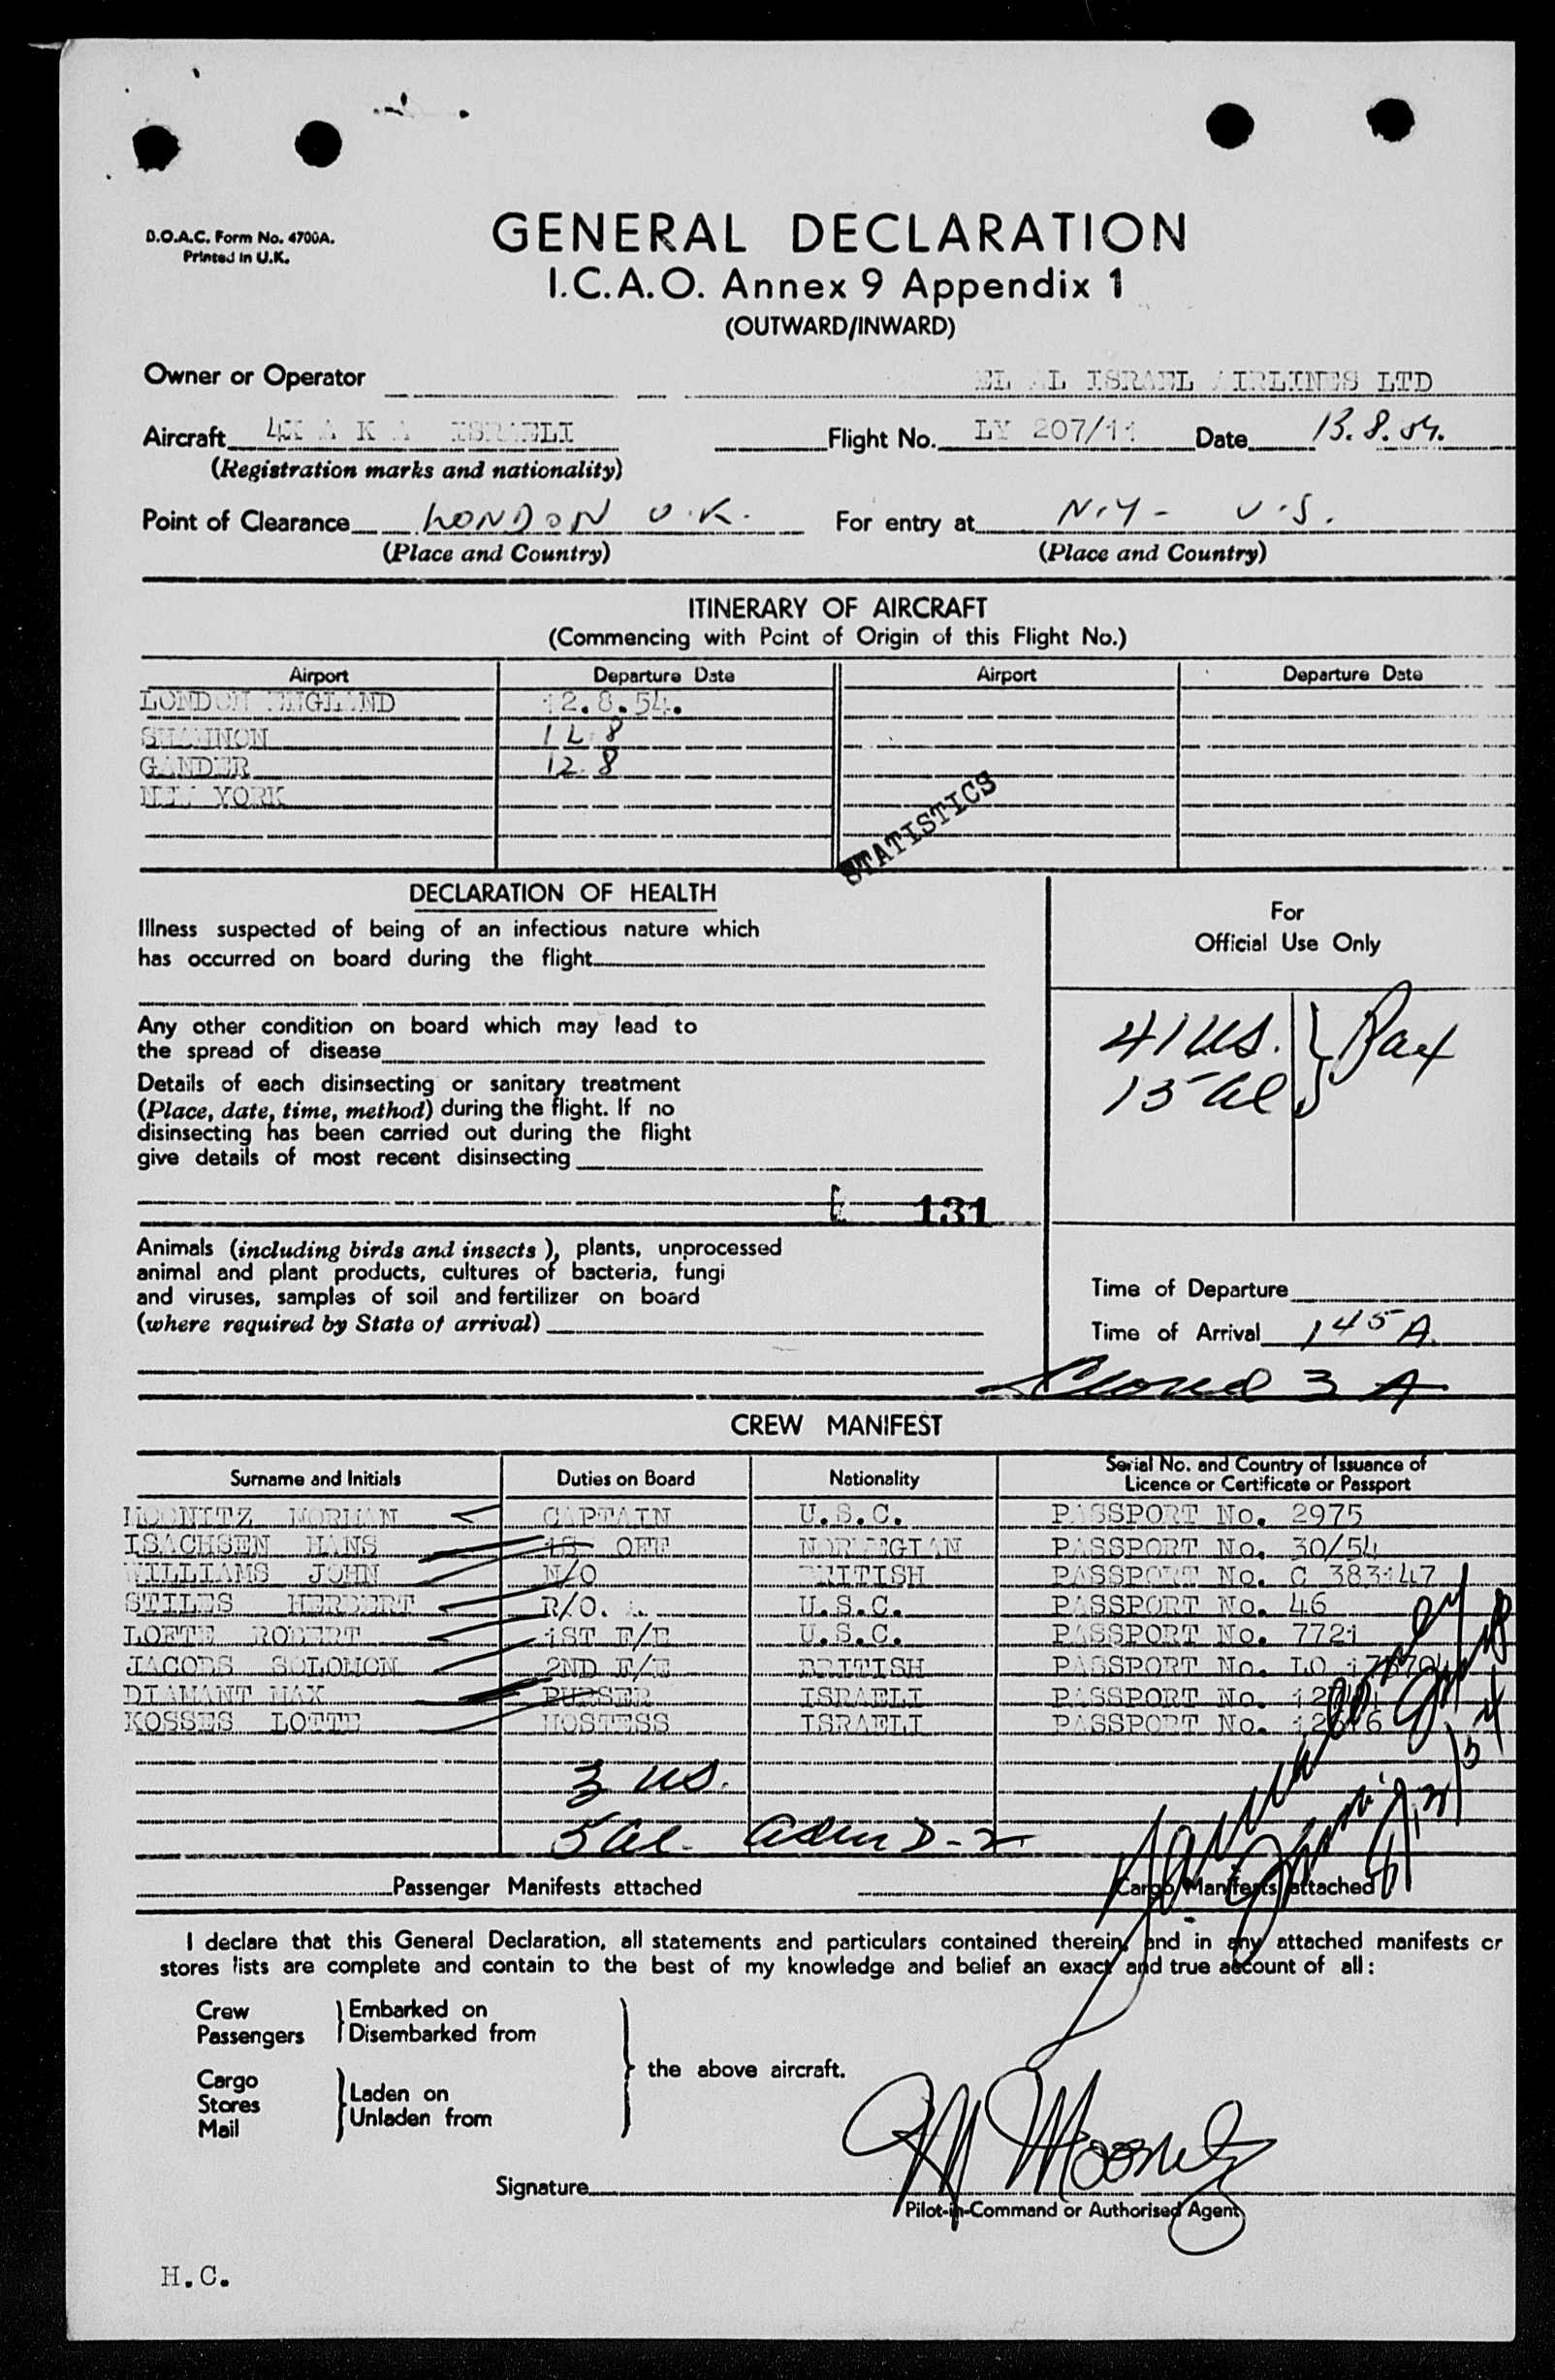 B.O.A.C. Form No. 4700A.
Printed in U.K.
GENERAL DECLARATION
I.C.A.O. Annex 9 Appendix 1
(OUTWARD/INWARD)
Owner or Operator EL AL ISRAEL AIRLINES LTD
Aircraft 4X A K A ISRAELI Flight No. LY 207/11 Date 13.8.54.
(Registration marks and nationality)
Point of Clearance LONDON U.K. For entry at N.Y- U.S.
(Place and Country) (Place and Country)
ITINERARY OF AIRCRAFT
(Commencing with Point of Origin of this Flight No.)
Airport Departure Date Airport Departure Date
LONDON ENGLAND 12.8.54.
SHANNON 12.8
GANDER 12.8
NEW YORK
STATISTICS
DECLARATION OF HEALTH
Illness suspected of being of an infectious nature which
has occurred on board during the flight
Any other condition on board which may lead to
the spread of disease
Details of each disinsecting or sanitary treatment
(Place, date, time, method) during the flight. If no
disinsecting has been carried out during the flight
give details of most recent disinsecting
131
Animals (including birds and insects), plants, unprocessed
animal and plant products, cultures of bacteria, fungi
and viruses, samples of soil and fertilizer on board
(where required by State of arrival)
For
Official Use Only
41 US. Pax
15 al
Time of Departure
Time of Arrival 145 A.
Closed 3 A
CREW MANIFEST
Surname and Initials Duties on Board Nationality Serial No. and Country of Issuance of
Licence or Certificate or Passport
MOONITZ NORMAN CAPTAIN U.S.C. PASSPORT No. 2975
ISACHSEN HANS 1S OFF NORWEGIAN PASSPORT No. 30/54
WILLIAMS JOHN N/O BRITISH PASSPORT No. C 383147
STILES HERBERT R/O. U.S.C. PASSPORT No. 46
LOFTE ROBERT 1ST F/E U.S.C. PASSPORT No. 7721
JACOBS SOLOMON 2ND F/E BRITISH PASSPORT No. LO
DIAMANT MAX PURSER ISRAELI PASSPORT No.
KOSSES LOTTE HOSTESS ISRAELI PASSPORT No.
3 US.
5 al. adm D-2
Passenger Manifests attached Cargo Manifests attached
I declare that this General Declaration, all statements and particulars contained therein, and in any attached manifests or
stores lists are complete and contain to the best of my knowledge and belief an exact and true account of all:
Crew Embarked on
Passengers Disembarked from
the above aircraft.
Cargo
Stores Laden on
Mail Unladen from
Signature N Moonitz
Pilot-in-Command or Authorised Agent
H.C.